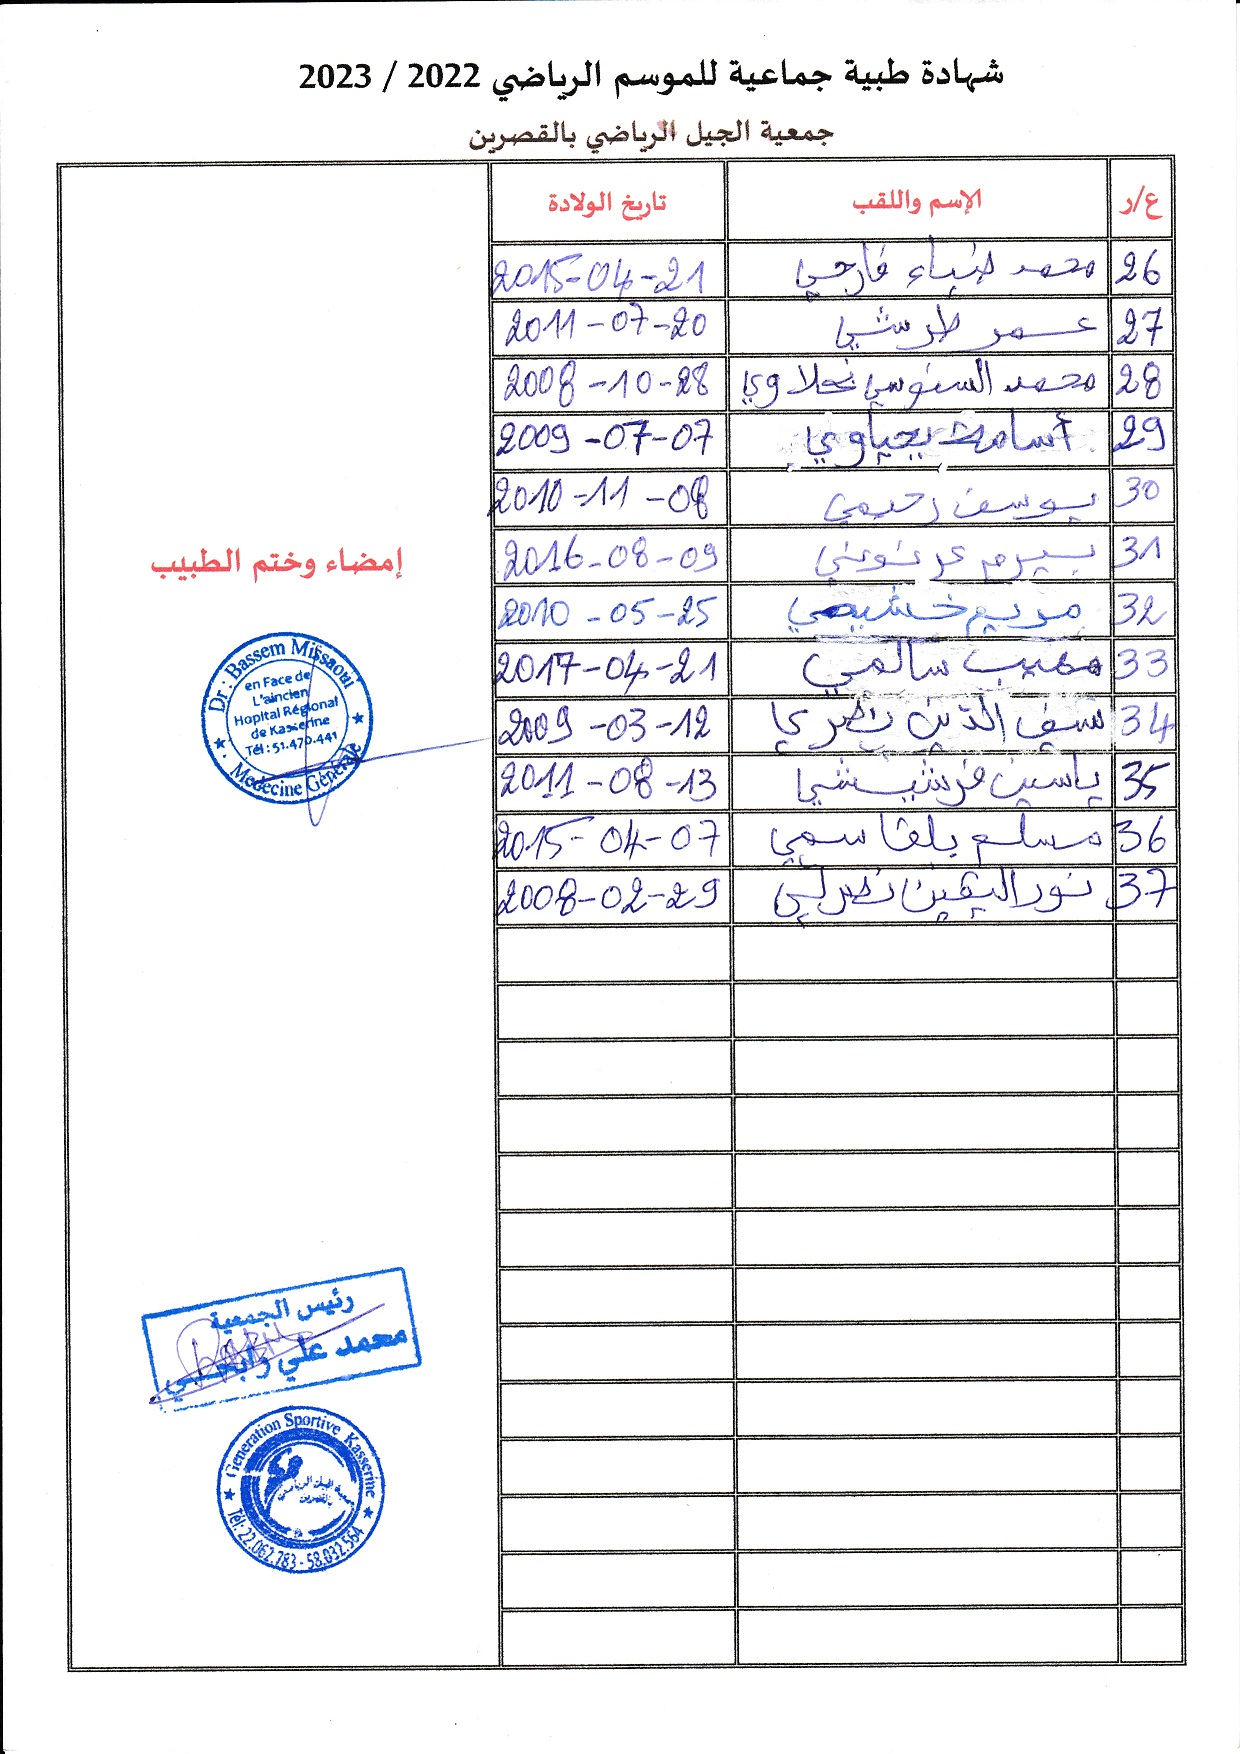 شهادة طبية جماعية للموسم الرياضي 2022 / 2023
جمعية الجيل الرياضي بالقصرين
ع/ر الإسم واللقب تاريخ الولادة
26 محمد ضياء فارحي 2015-04-21
27 عمر طرشي 2011-07-20
28 محمد السنوسي نحلاوي 2008-10-28
29 أسامة يحياوي 2009-07-07
30 يوسف رحيمي 2010-11-08
31 بيرم 2016-08-09
32 مريم خشيمي 2010-05-25
33 سالمي 2017-04-21
34 سيف الدين نصري 2009-03-12
35 ياسين قريشيشي 2011-08-13
36 مسلم بلقاسمي 2015-04-07
37 نور اليقين نصرلي 2008-02-29
إمضاء وختم الطبيب
Dr : Bassem Missaoui
en Face de
L'aincien
Hopital Régional
de Kasserine
Tél : 51.470.441
Medecine Générale
رئيس الجمعية
محمد علي رابحي
Generation Sportive Kasserine
جمعية الجيل الرياضي
بالقصرين
Tél: 22.062.783 - 58.032.564